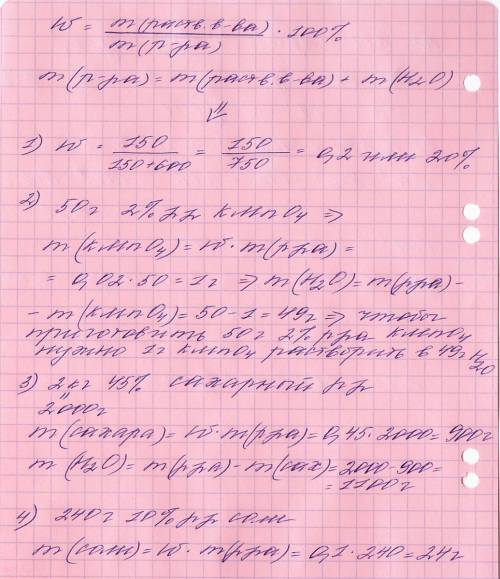 W = m(раств. в-ва) / m(р-ра) · 100%
m(р-ра) = m(раств. в-ва) + m(H2O)
⇓
1) W = 150 / 150+600 = 150 / 750 = 0,2 или 20%
2) 50г 2% р-р KMnO4 ⇒
m(KMnO4) = W · m(р-ра) =
= 0,02 · 50 = 1г ⇒ m(H2O) = m(р-ра) -
- m(KMnO4) = 50 - 1 = 49г ⇒ чтобы
приготовить 50г 2% р-ра KMnO4
нужно 1г KMnO4 растворить в 49г H2O
3) 2кг 45% сахарный р-р
"
2000г
m(сахара) = W · m(р-ра) = 0,45 · 2000 = 900г
m(H2O) = m(р-ра) - m(сах) = 2000 - 900 =
= 1100г
4) 240г 10% р-р соли
m(соли) = W · m(р-ра) = 0,1 · 240 = 24г